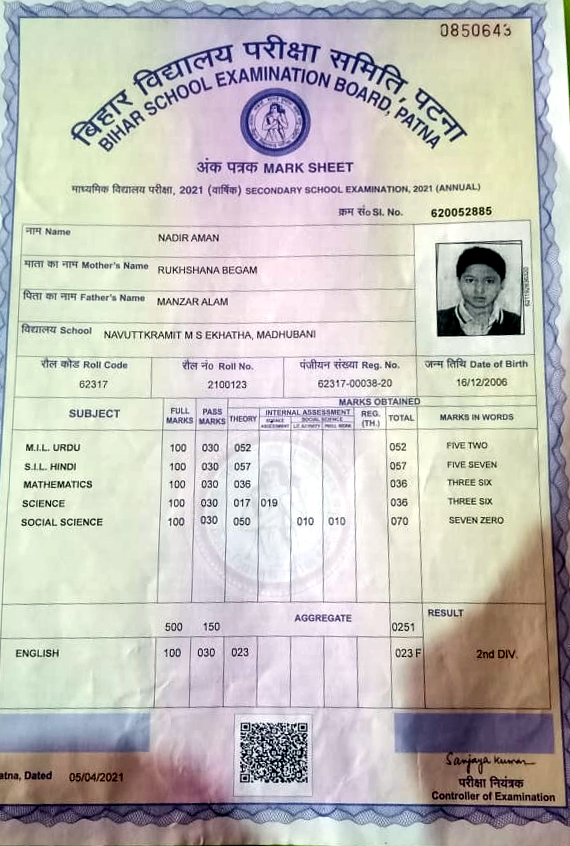 0850643
बिहार विद्यालय परीक्षा समिति, पटना
BIHAR SCHOOL EXAMINATION BOARD, PATNA
अंक पत्रक MARK SHEET
माध्यमिक विद्यालय परीक्षा, 2021 (वार्षिक) SECONDARY SCHOOL EXAMINATION, 2021 (ANNUAL)
क्रम सं० Sl. No. 620052885
नाम Name NADIR AMAN
माता का नाम Mother's Name RUKHSHANA BEGAM
पिता का नाम Father's Name MANZAR ALAM
विद्यालय School NAVUTTKRAMIT M S EKHATHA, MADHUBANI
रौल कोड Roll Code रौल नं० Roll No. पंजीयन संख्या Reg. No. जन्म तिथि Date of Birth
62317 2100123 62317-00038-20 16/12/2006
MARKS OBTAINED
SUBJECT FULL MARKS PASS MARKS THEORY INTERNAL ASSESSMENT REG. (TH.) TOTAL MARKS IN WORDS
SCIENCE ASSESSMENT SOCIAL SCIENCE LIT. ACTIVITY PROJ. WORK
M.I.L. URDU 100 030 052 052 FIVE TWO
S.I.L. HINDI 100 030 057 057 FIVE SEVEN
MATHEMATICS 100 030 036 036 THREE SIX
SCIENCE 100 030 017 019 036 THREE SIX
SOCIAL SCIENCE 100 030 050 010 010 070 SEVEN ZERO
500 150 AGGREGATE 0251 RESULT
ENGLISH 100 030 023 023 F 2nd DIV.
atna, Dated 05/04/2021
Sanjaya Kumar
परीक्षा नियंत्रक
Controller of Examination